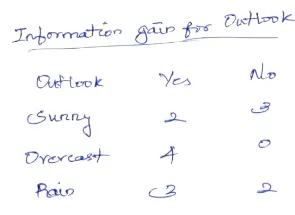 Information gain for Outlook
Outlook Yes No
Sunny 2 3
Overcast 4 0
Rain 3 2